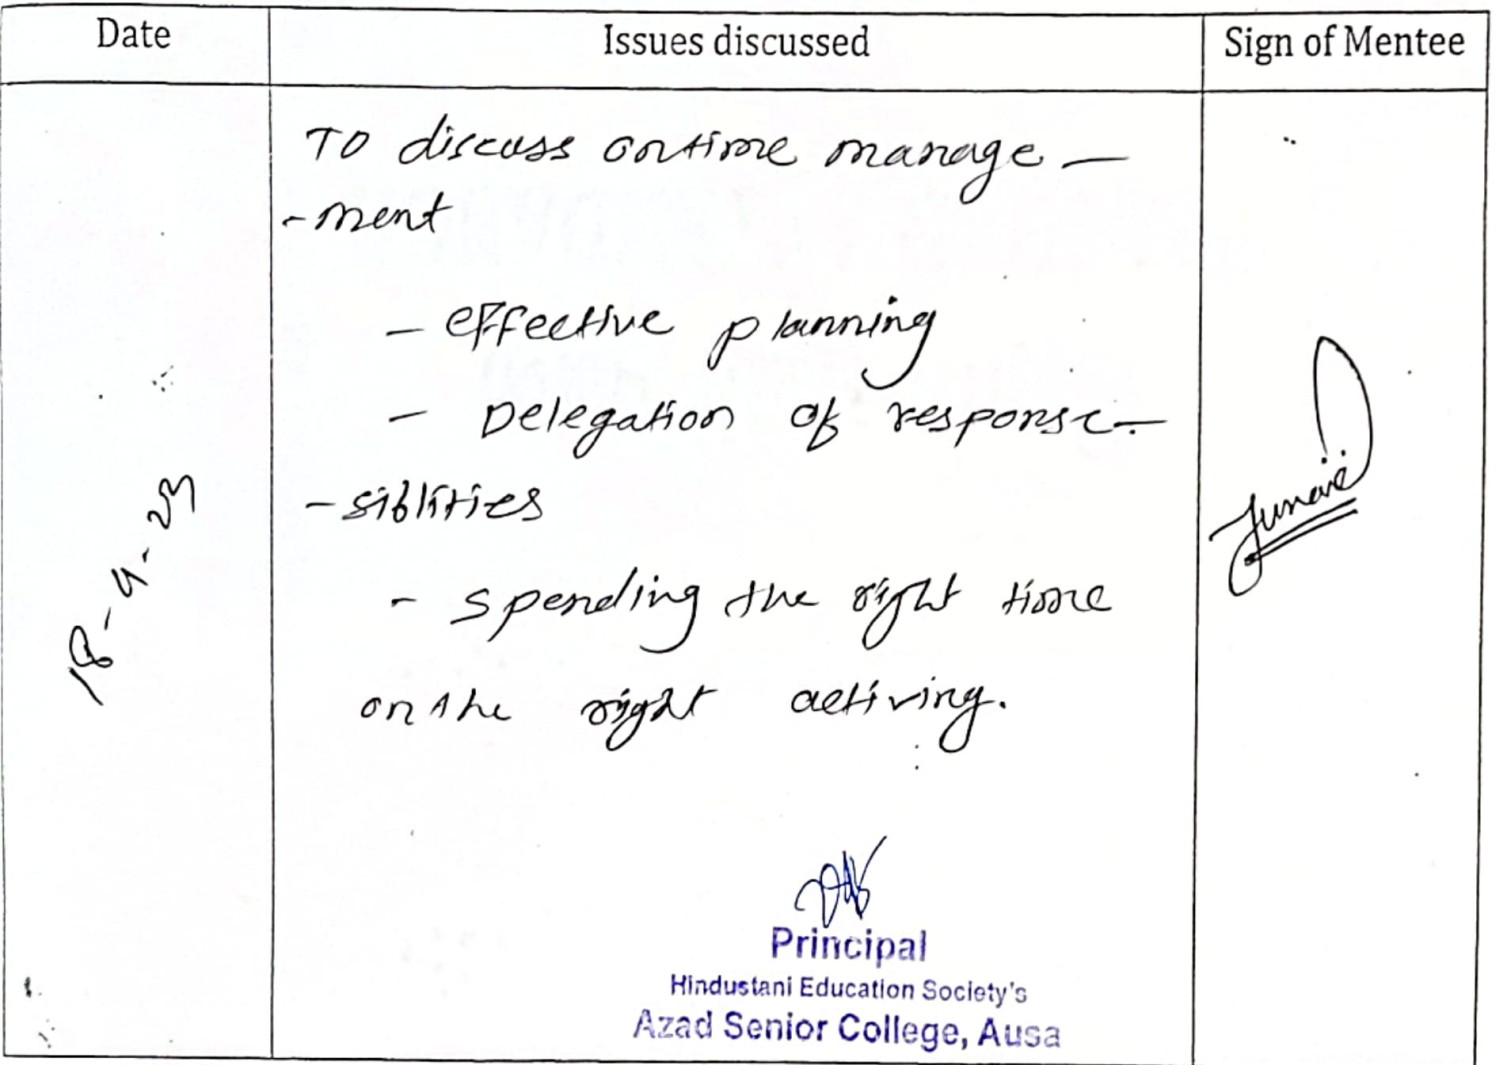 Date Issues discussed Sign of Mentee
TO discuss on time manage -
- ment
- effective planning
- Delegation of response -
- siblities
- spending the right time
on the right activing.
18-4-23
Junaid
Principal
Hindustani Education Society's
Azad Senior College, Ausa